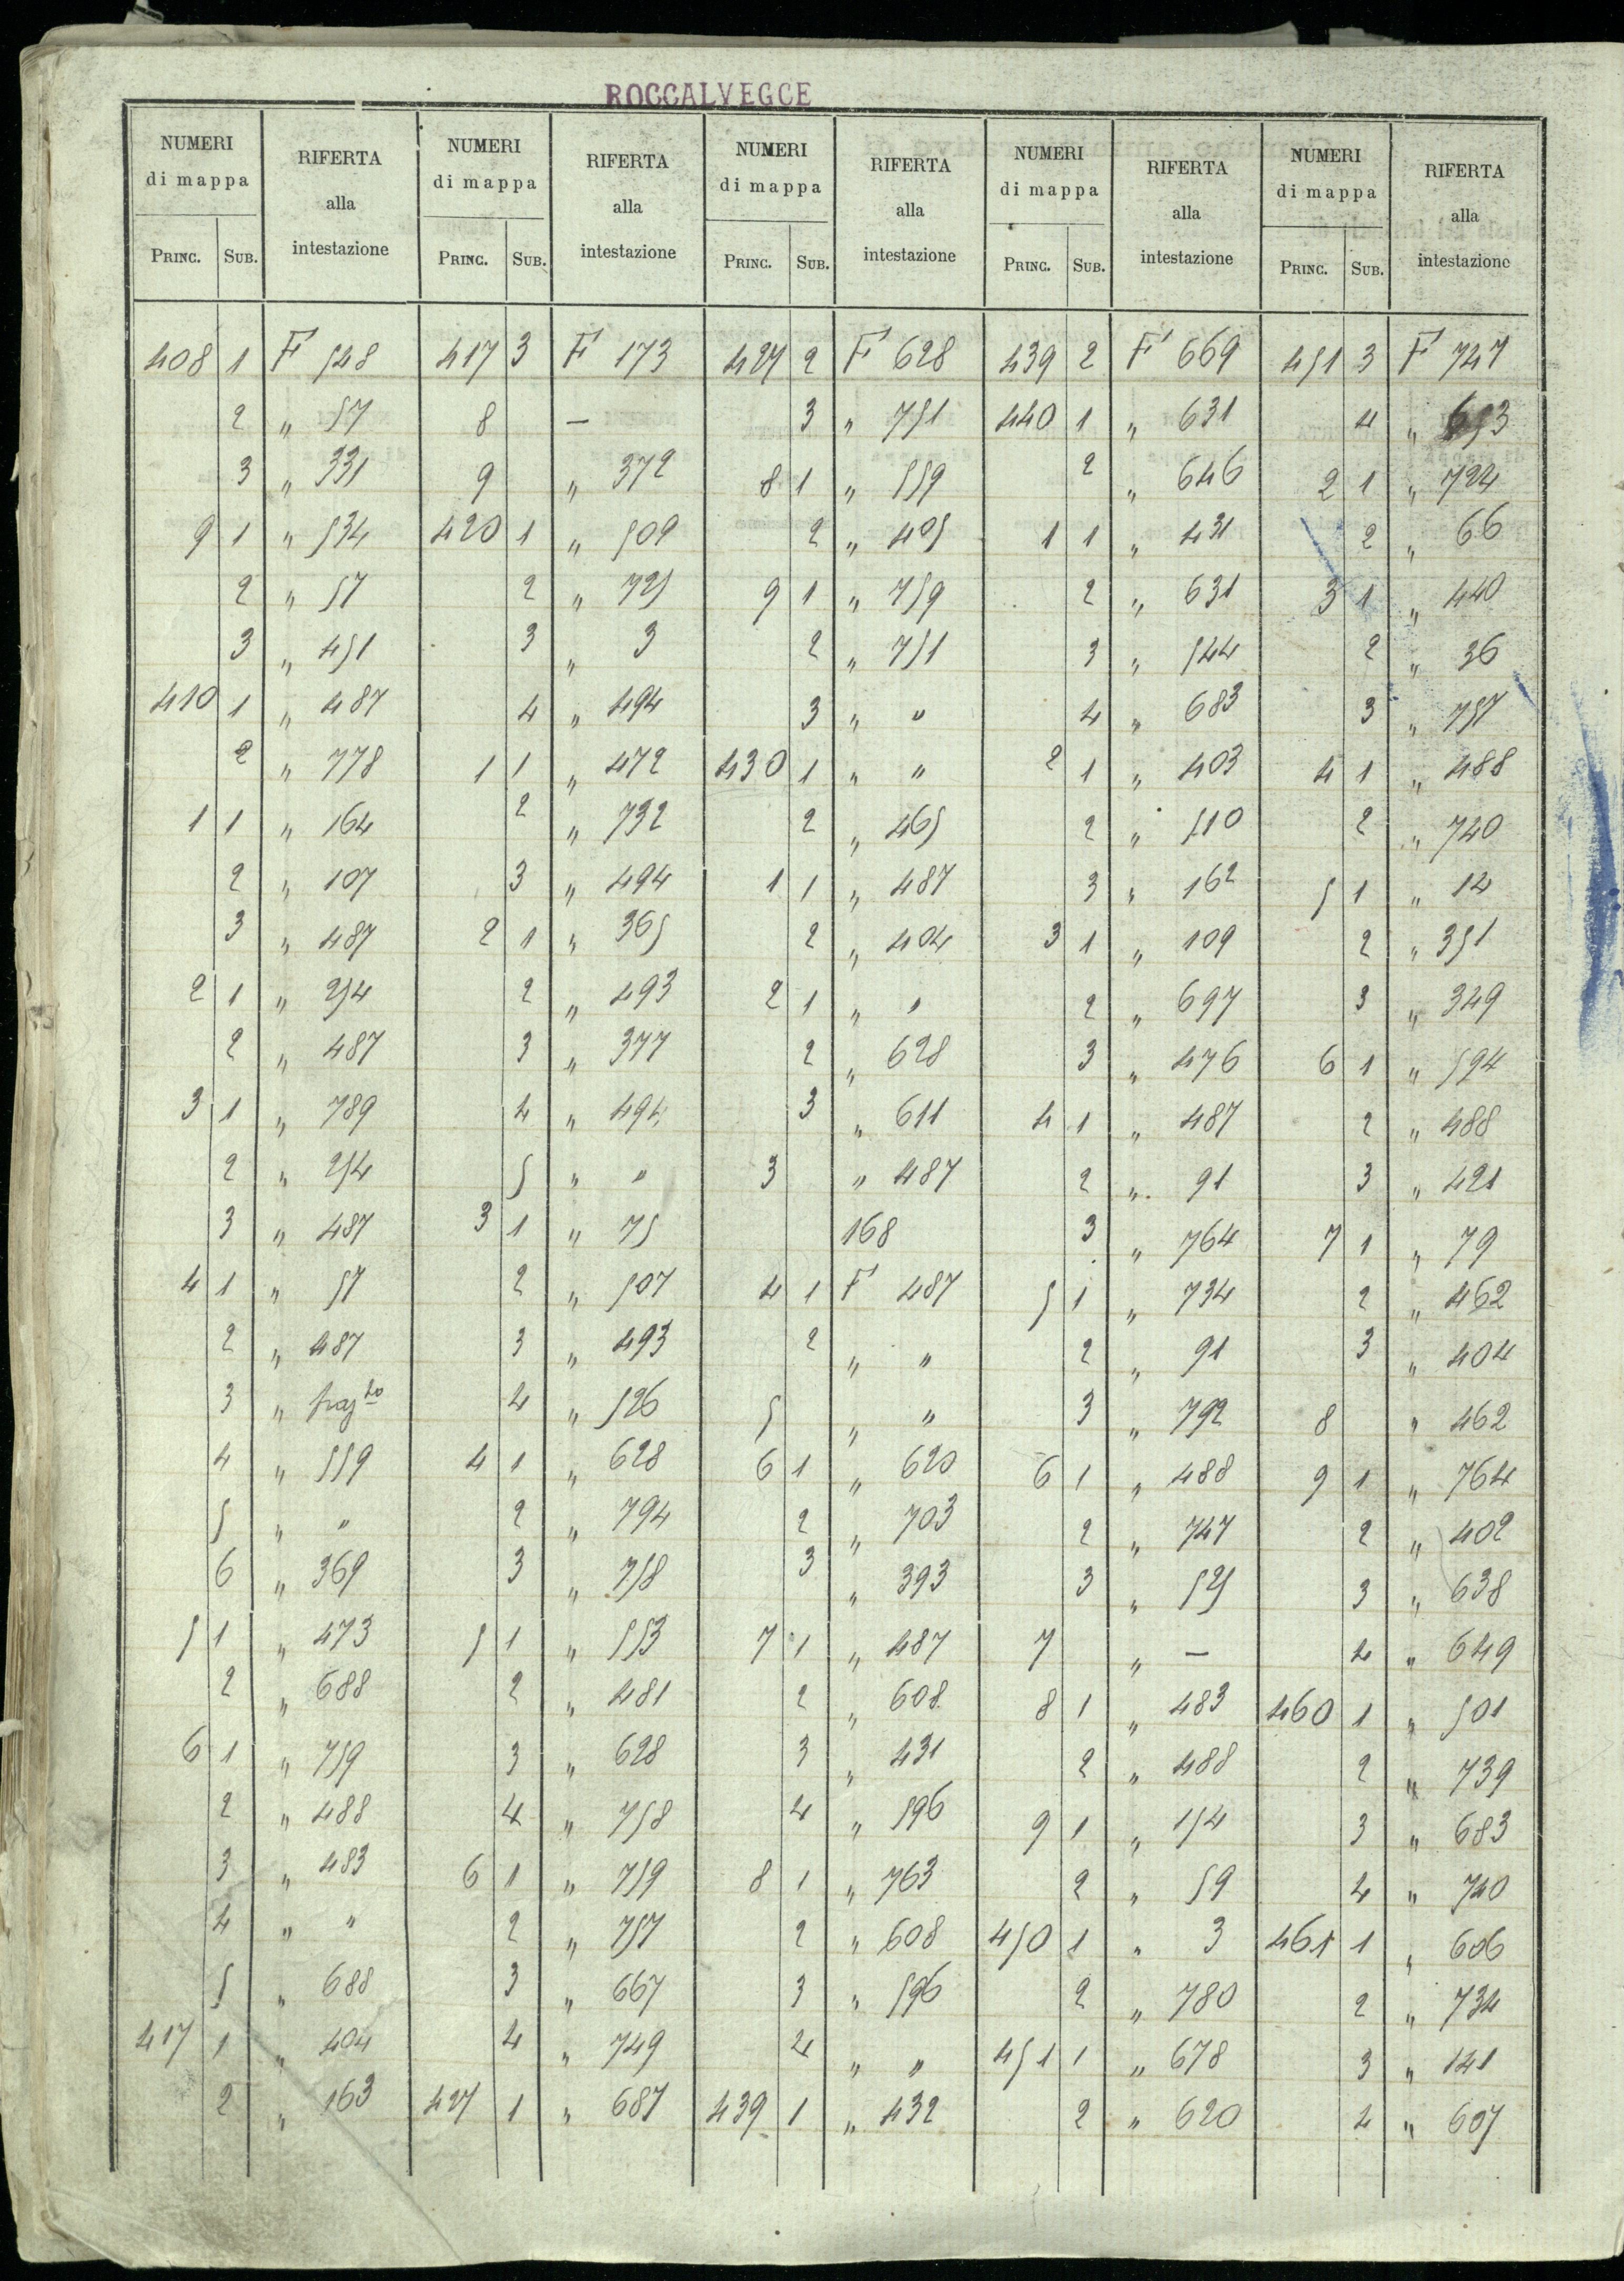 ROCCALVEGCE
NUMERI di mappa RIFERTA alla intestazione NUMERI di mappa RIFERTA alla intestazione NUMERI di mappa RIFERTA alla intestazione NUMERI di mappa RIFERTA alla intestazione NUMERI di mappa RIFERTA alla intestazione
PRINC. SUB. PRINC. SUB. PRINC. SUB. PRINC. SUB. PRINC. SUB.
408 1 F 548 417 3 F 173 427 2 F 628 439 2 F 669 451 3 F 747
2 " 57 8 — 3 " 751 440 1 " 631 4 " 653
3 " 331 9 " 372 8 1 " 559 2 " 646 2 1 " 724
9 1 " 534 420 1 " 509 2 " 405 1 1 " 431 2 " 66
2 " 57 2 " 725 9 1 " 759 2 " 631 3 1 " 440
3 " 451 3 " 3 2 " 751 3 " 544 2 " 36
410 1 " 487 4 " 494 3 " " 4 " 683 3 " 757
2 " 778 1 1 " 472 430 1 " " 2 1 " 403 4 1 " 488
1 1 " 164 2 " 732 2 " 465 2 " 510 2 " 740
2 " 107 3 " 494 1 1 " 487 3 " 162 5 1 " 12
3 " 487 2 1 " 365 2 " 404 3 1 " 109 2 " 351
2 1 " 254 2 " 493 2 1 " " 2 " 697 3 " 349
2 " 487 3 " 377 2 " 628 3 " 476 6 1 " 594
3 1 " 789 4 " 494 3 " 611 4 1 " 487 2 " 488
2 " 254 5 " " 3 " 487 2 " 91 3 " 421
3 " 487 3 1 " 75 168 3 " 764 7 1 " 79
4 1 " 57 2 " 507 4 1 F 487 5 1 " 734 2 " 462
2 " 487 3 " 493 2 " " 2 " 91 3 " 404
3 " fraz to 4 " 526 5 " " 3 " 792 8 " 462
4 " 559 4 1 " 628 6 1 " 620 6 1 " 488 9 1 " 764
5 " " 2 " 794 2 " 703 2 " 747 2 " 402
6 " 369 3 " 758 3 " 393 3 " 525 3 " 638
5 1 " 473 5 1 " 553 7 1 " 487 7 " — 4 " 649
2 " 688 2 " 481 2 " 608 8 1 " 483 460 1 " 501
6 1 " 759 3 " 628 3 " 431 2 " 488 2 " 739
2 " 488 4 " 758 4 " 596 9 1 " 154 3 " 683
3 " 483 6 1 " 759 8 1 " 763 2 " 59 4 " 740
4 " " 2 " 757 2 " 608 450 1 " 3 461 1 " 606
5 " 688 3 " 667 3 " 596 2 " 780 2 " 734
417 1 " 404 4 " 749 4 " " 451 1 " 678 3 " 141
2 " 163 427 1 " 687 439 1 " 432 2 " 620 4 " 607